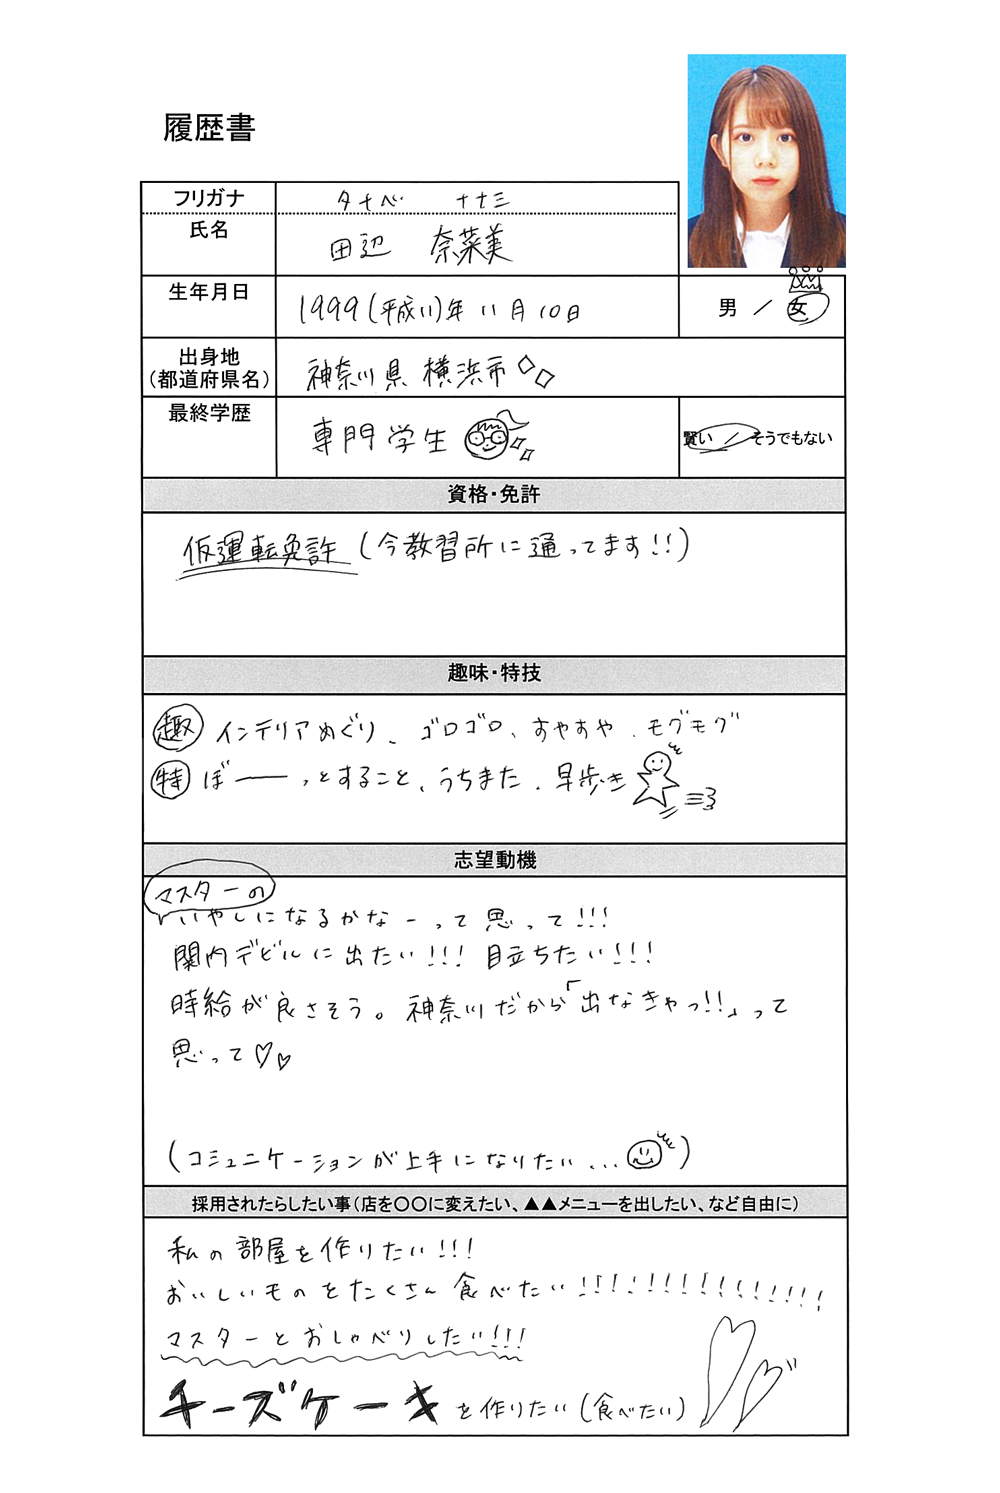 履歴書
フリガナ タナベ ナナミ
氏名 田辺 奈菜美
生年月日 1999(平成11)年11月10日 男 / 女
出身地
(都道府県名) 神奈川県 横浜市
最終学歴 専門学生 賢い / そうでもない
資格・免許
仮運転免許 (今教習所に通ってます!!)
趣味・特技
趣 インテリアめぐり、ゴロゴロ、すやすや、モグモグ
特 ぼーーっとすること、うちまた、早歩き
志望動機
マスターの
いやしになるかなーって思って!!!
関内デビルに出たい!!! 目立ちたい!!!
時給が良さそう。神奈川だから「出なきゃっ!!」って
思って♡♡
(コミュニケーションが上手になりたい...)
採用されたらしたい事(店を〇〇に変えたい、▲▲メニューを出したい、など自由に)
私の部屋を作りたい!!!
おいしいものをたくさん食べたい!!!!!!!!!!!!!!!
マスターとおしゃべりしたい!!!
チーズケーキを作りたい(食べたい)